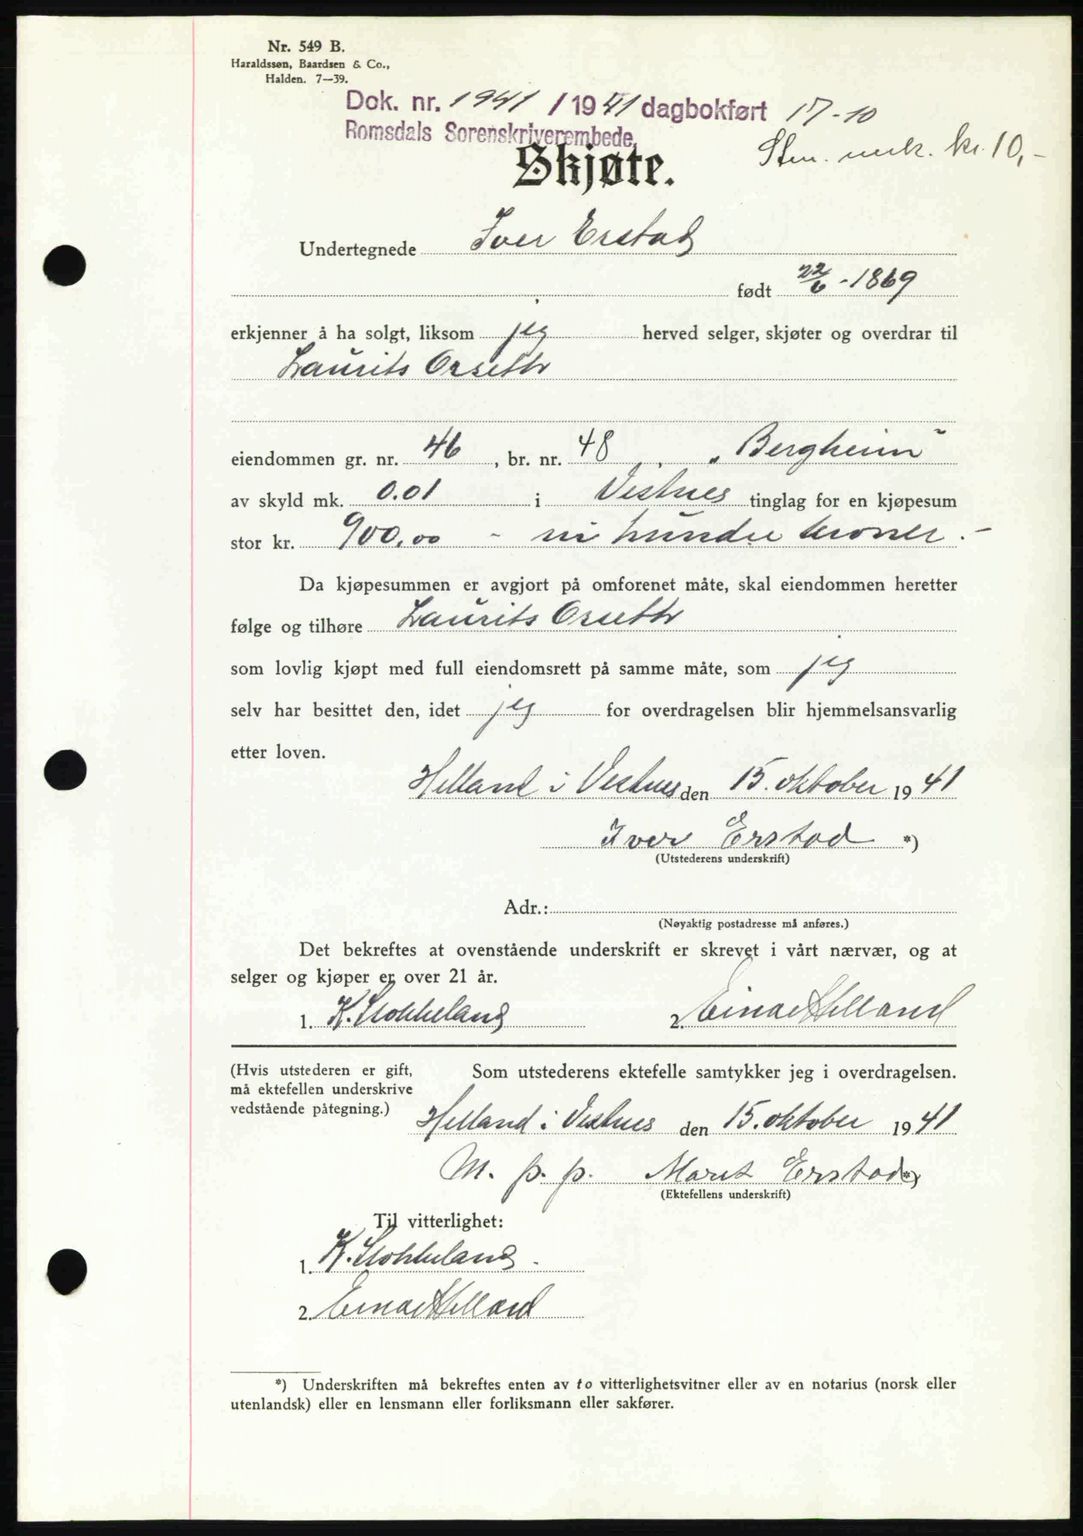 Nr. 549 B.
Haraldssøn, Baardsen & Co.,
Halden. 7—39.
Dok. nr. 1941 / 1941 dagbokført 17-10
Romsdals Sorenskriverembede.
Stm. merk. kr. 10,-
Skjøte.
Undertegnede Iver Erstad
født 22/6 - 1869
erkjenner å ha solgt, liksom jeg herved selger, skjøter og overdrar til
Laurits Orseth
eiendommen gr. nr. 46, br. nr. 48, „Bergheim"
av skyld mk. 0.01 i Vestnes tinglag for en kjøpesum
stor kr. 900,00 - ni hundre kroner. -
Da kjøpesummen er avgjort på omforenet måte, skal eiendommen heretter
følge og tilhøre Laurits Orseth
som lovlig kjøpt med full eiendomsrett på samme måte, som jeg
selv har besittet den, idet jeg for overdragelsen blir hjemmelsansvarlig
etter loven.
Helland i Vestnes den 15. oktober 1941
Iver Erstad *)
(Utstederens underskrift)
Adr.:
(Nøyaktig postadresse må anføres.)
Det bekreftes at ovenstående underskrift er skrevet i vårt nærvær, og at
selger og kjøper er over 21 år.
1. K. Stokkeland 2. Einar Helland
(Hvis utstederen er gift, Som utstederens ektefelle samtykker jeg i overdragelsen.
må ektefellen underskrive
vedstående påtegning.)
Helland i Vestnes den 15. oktober 1941
M. p. p. Marit Erstad *)
(Ektefellens underskrift)
Til vitterlighet:
1. K. Stokkeland.
2. Einar Helland
*) Underskriften må bekreftes enten av to vitterlighetsvitner eller av en notarius (norsk eller
utenlandsk) eller en lensmann eller forliksmann eller sakfører.